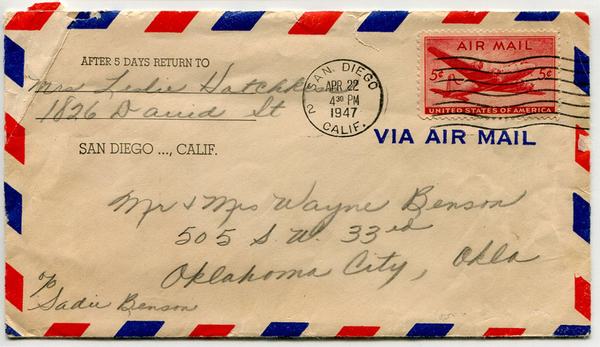 AFTER 5 DAYS RETURN TO
Mrs Leslie Hatchk
1826 David St
SAN DIEGO ..., CALIF.
SAN DIEGO
2
APR 22
4 30 PM
1947
CALIF.
AIR MAIL
5¢ 5¢
UNITED STATES OF AMERICA
VIA AIR MAIL
Mr & Mrs Wayne Benson
505 S.W. 33rd
Oklahoma City, Okla
c/o
Sadie Benson